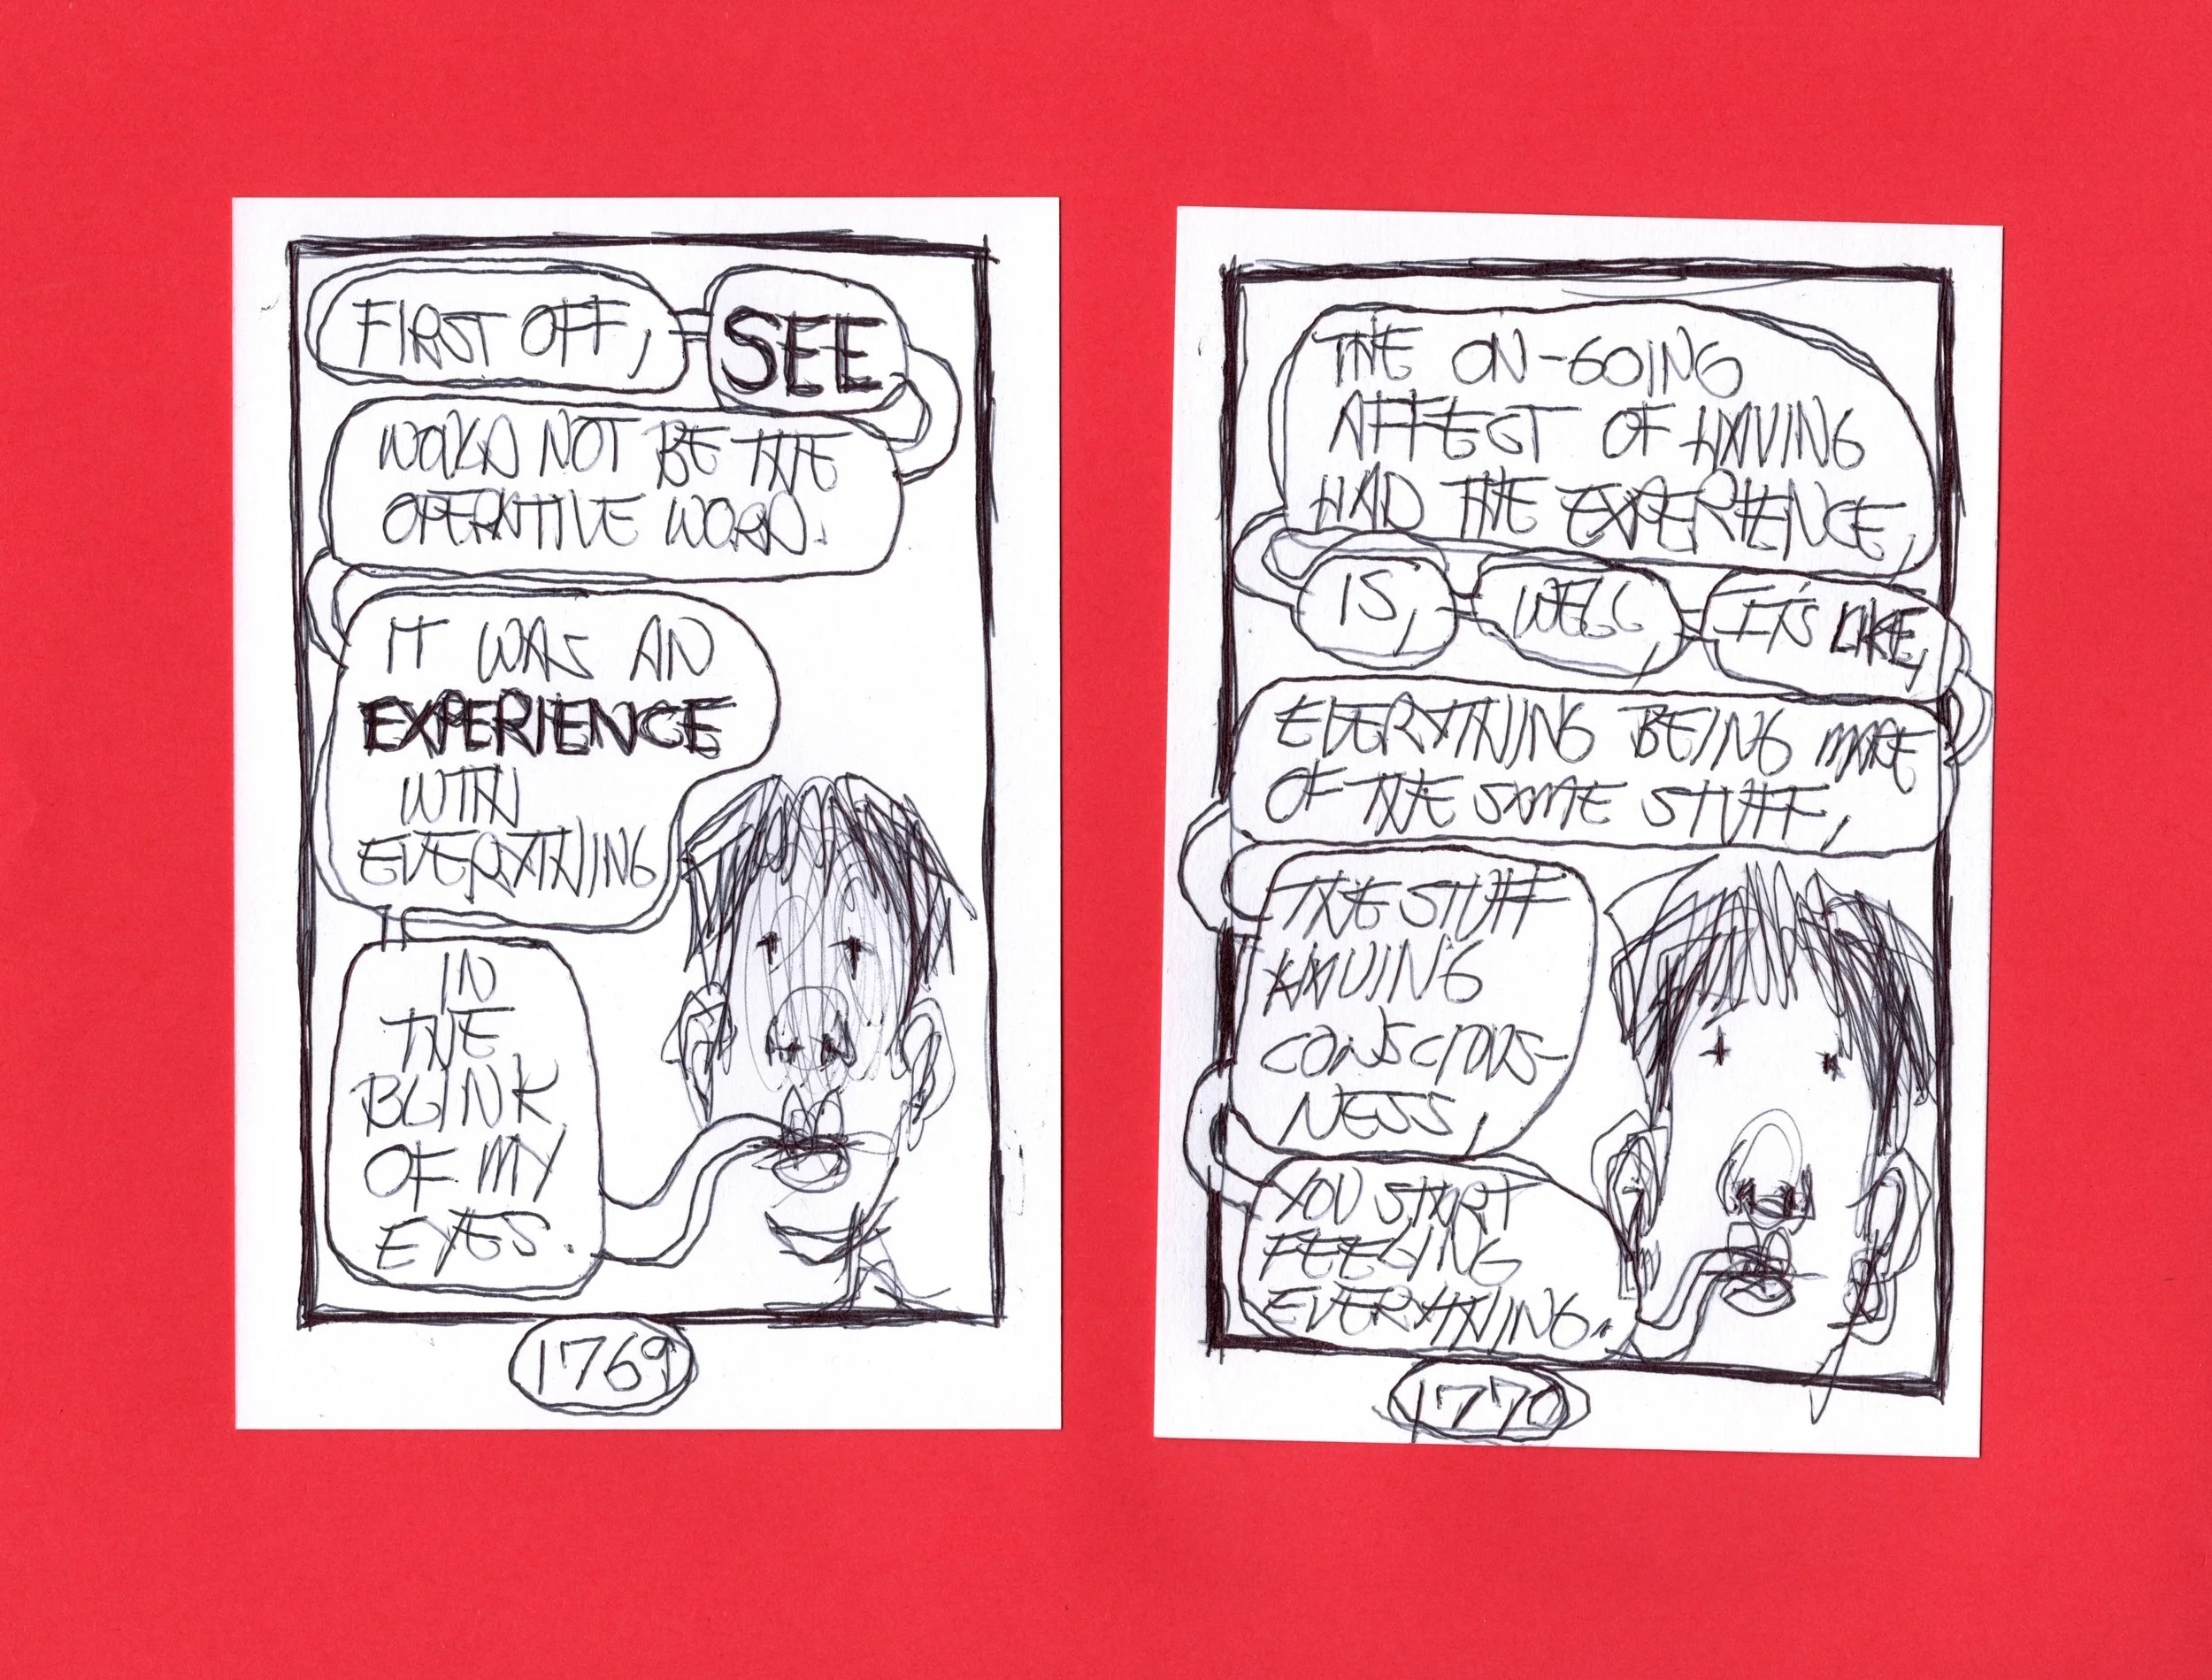 FIRST OFF,
SEE
WOULD NOT BE THE
OPERATIVE WORD.
IT WAS AN
EXPERIENCE
WITH
EVERYTHING
IN
THE
BLINK
OF MY
EYES.
1769
THE ON-GOING
AFFECT OF HAVING
HAD THE EXPERIENCE,
IS,
WELL,
IT'S LIKE,
EVERYTHING BEING MADE
OF THE SAME STUFF,
THE STUFF
HAVING
CONSCIOUS-
NESS,
YOU START
FEELING
EVERYTHING.
1770